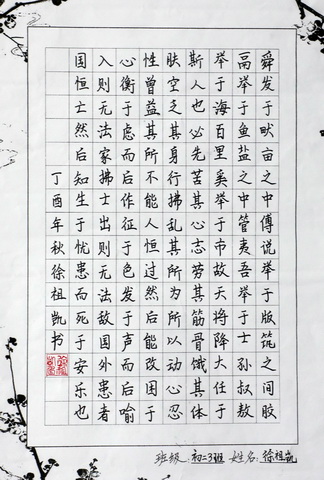 舜发于畎亩之中傅说举于版筑之间胶
鬲举于鱼盐之中管夷吾举于士孙叔敖
举于海百里奚举于市故天将降大任于
斯人也必先苦其心志劳其筋骨饿其体
肤空乏其身行拂乱其所为所以动心忍
性曾益其所不能人恒过然后能改困于
心衡于虑而后作征于色发于声而后喻
入则无法家拂士出则无法敌国外患者
国恒士然后知生于忧患而死于安乐也
丁酉年秋徐祖凯书
班级:初二3班 姓名:徐祖凯